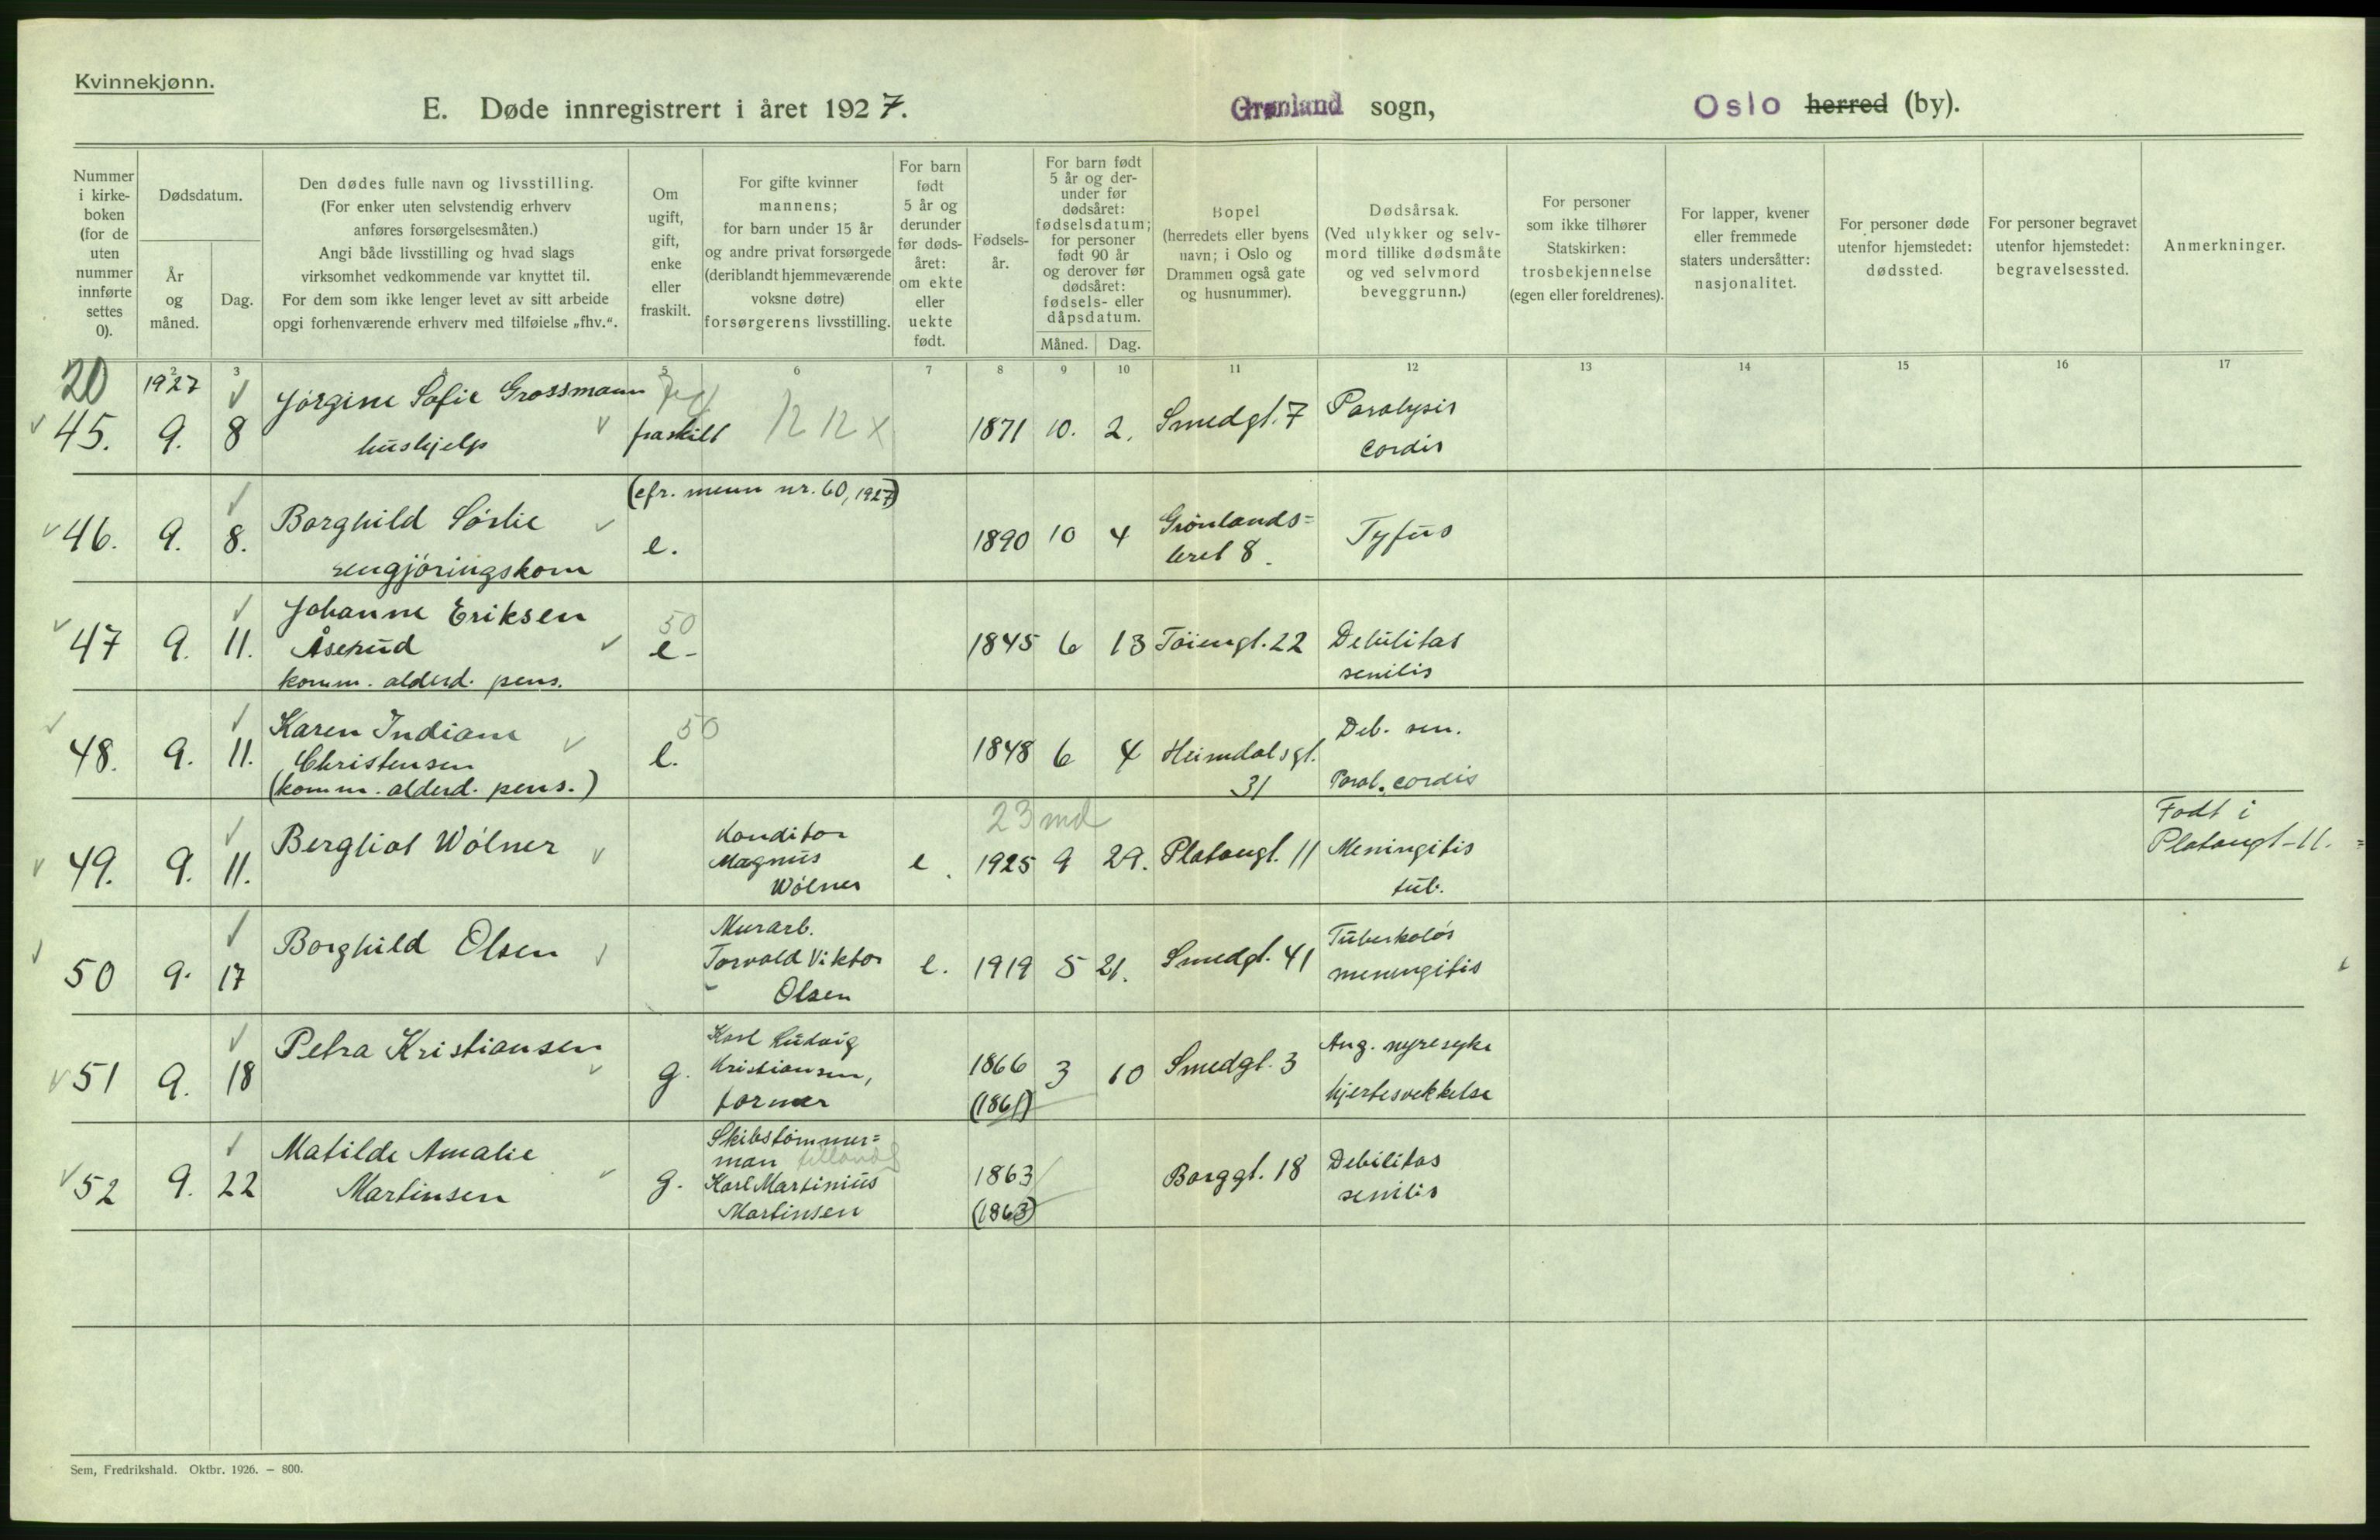 Kvinnekjønn.
E. Døde innregistrert i året 1927. Grønland sogn, Oslo herred (by).
Nummer i kirkeboken (for de uten nummer innførte settes 0).
Dødsdatum.
År og måned.
Dag.
Den dødes fulle navn og livsstilling.
(For enker uten selvstendig erhverv
anføres forsørgelsesmåten.)
Angi både livsstilling og hvad slags
virksomhet vedkommende var knyttet til.
For dem som ikke lenger levet av sitt arbeide
opgi forhenværende erhverv med tilføielse „fhv.“.
Om
ugift,
gift,
enke
eller
fraskilt.
For gifte kvinner
mannens;
for barn under 15 år
og andre privat forsørgede
(deriblandt hjemmeværende
voksne døtre)
forsørgerens livsstilling.
For barn
født
5 år og
derunder
før døds-
året:
om ekte
eller
uekte
født.
Fødsels-
år.
For barn født
5 år og der-
under før
dødsåret:
fødselsdatum;
for personer
født 90 år
og derover før
dødsåret:
fødsels- eller
dåpsdatum.
Måned. Dag.
Bopel
(herredets eller byens
navn; i Oslo og
Drammen også gate
og husnummer).
Dødsårsak.
(Ved ulykker og selv-
mord tillike dødsmåte
og ved selvmord
beveggrunn.)
For personer
som ikke tilhører
Statskirken:
trosbekjennelse
(egen eller foreldrenes).
For lapper, kvener
eller fremmede
staters undersåtter:
nasjonalitet.
For personer døde
utenfor hjemstedet:
dødssted.
For personer begravet
utenfor hjemstedet:
begravelsessted.
Anmerkninger.
2 3 5 6 7 8 9 10 11 12 13 14 15 16 17
20 1927
45. 9. 8 Jörgine Sofie Grossmann
hushjelp
fraskilt 12 12 x 1871 10. 2. Smedgt. 7 Paralysis
cordis
(cfr. menn nr. 60, 1927)
46. 9. 8. Borghild Sörlie
rengjöringskom
e. 1890 10 4 Grönlands=
leret 8. Tyfus
47 9. 11. Johanne Eriksen
Åserud
komm. alderd. pens.
50
e- 1845 6 13 Töiengt. 22 Debilitas
senilis
48. 9. 11. Karen Indiane
Christensen
(komm. alderd. pens.)
50
e. 1848 6 4 Heimdalsgt.
31 Deb. sen.
Paral. cordis
49. 9. 11. Bergliot Wölner
Konditor
Magnus
Wölner
e. 23 md
1925 9 29. Platougt. 11 Meningitis
tub.
Född i
Platougt-11.
50 9. 17 Borghild Olsen
Murarb.
Torvald Viktor
Olsen
e. 1919 5 21. Smedgt. 41 Tuberkulös
meningitis
51 9. 18 Petra Kristiansen
g. Karl Ludvig
Kristiansen,
former
1866
(1861)
3 10 Smedgt. 3 Ang. nyresyke
hjertesvekkelse
52 9. 22 Matilde Amalie
Martinsen
g. Skibstömmer=
man
Karl Martinius
Martinsen
1863
(1863)
Borggt. 18 Debilitas
senilis
Sem, Fredrikshald. Oktbr. 1926. — 800.